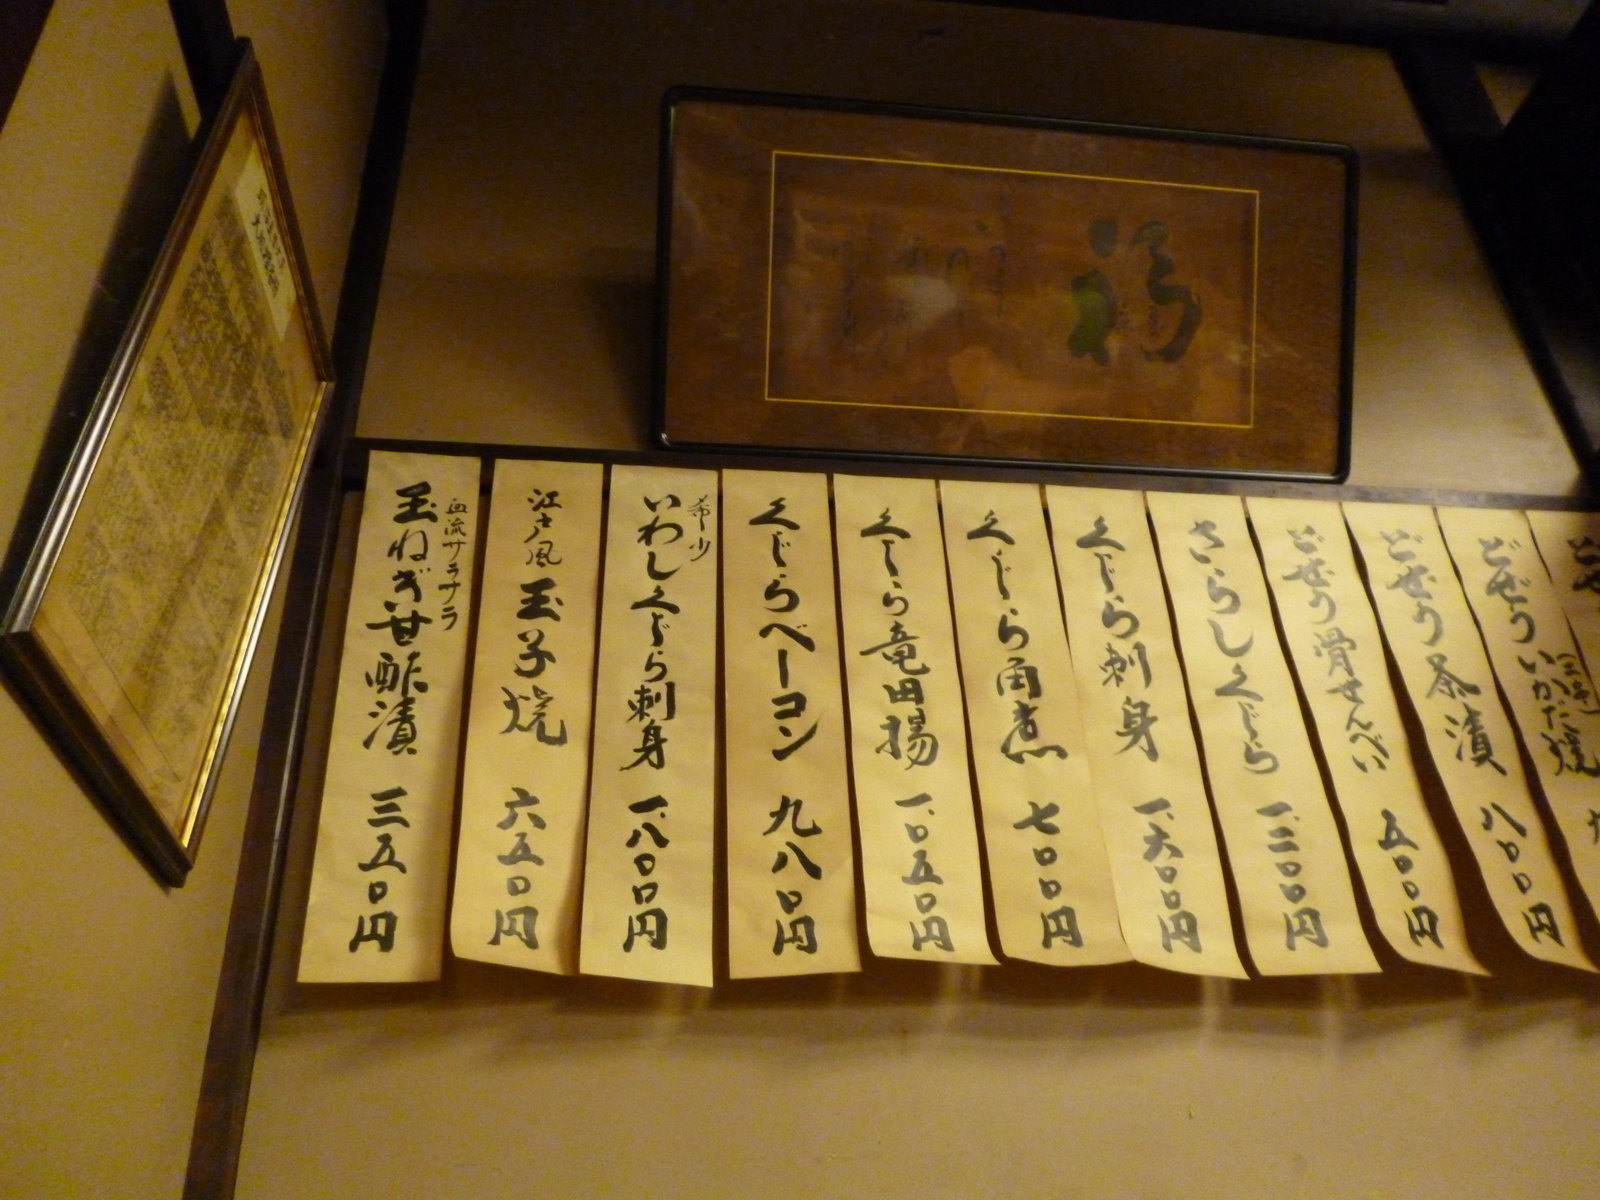 福
どぜう いかだ焼
どぜう茶漬 八〇〇円
どぜう骨せんべい 五〇〇円
さらしくじら 一、二〇〇円
くじら刺身 一、六〇〇円
くじら角煮 七〇〇円
くじら竜田揚 一、〇五〇円
くじらベーコン 九八〇円
希少
いわしくじら刺身 一、八〇〇円
江戸風 玉子焼 六五〇円
血流サラサラ
玉ねぎ甘酢漬 三五〇円